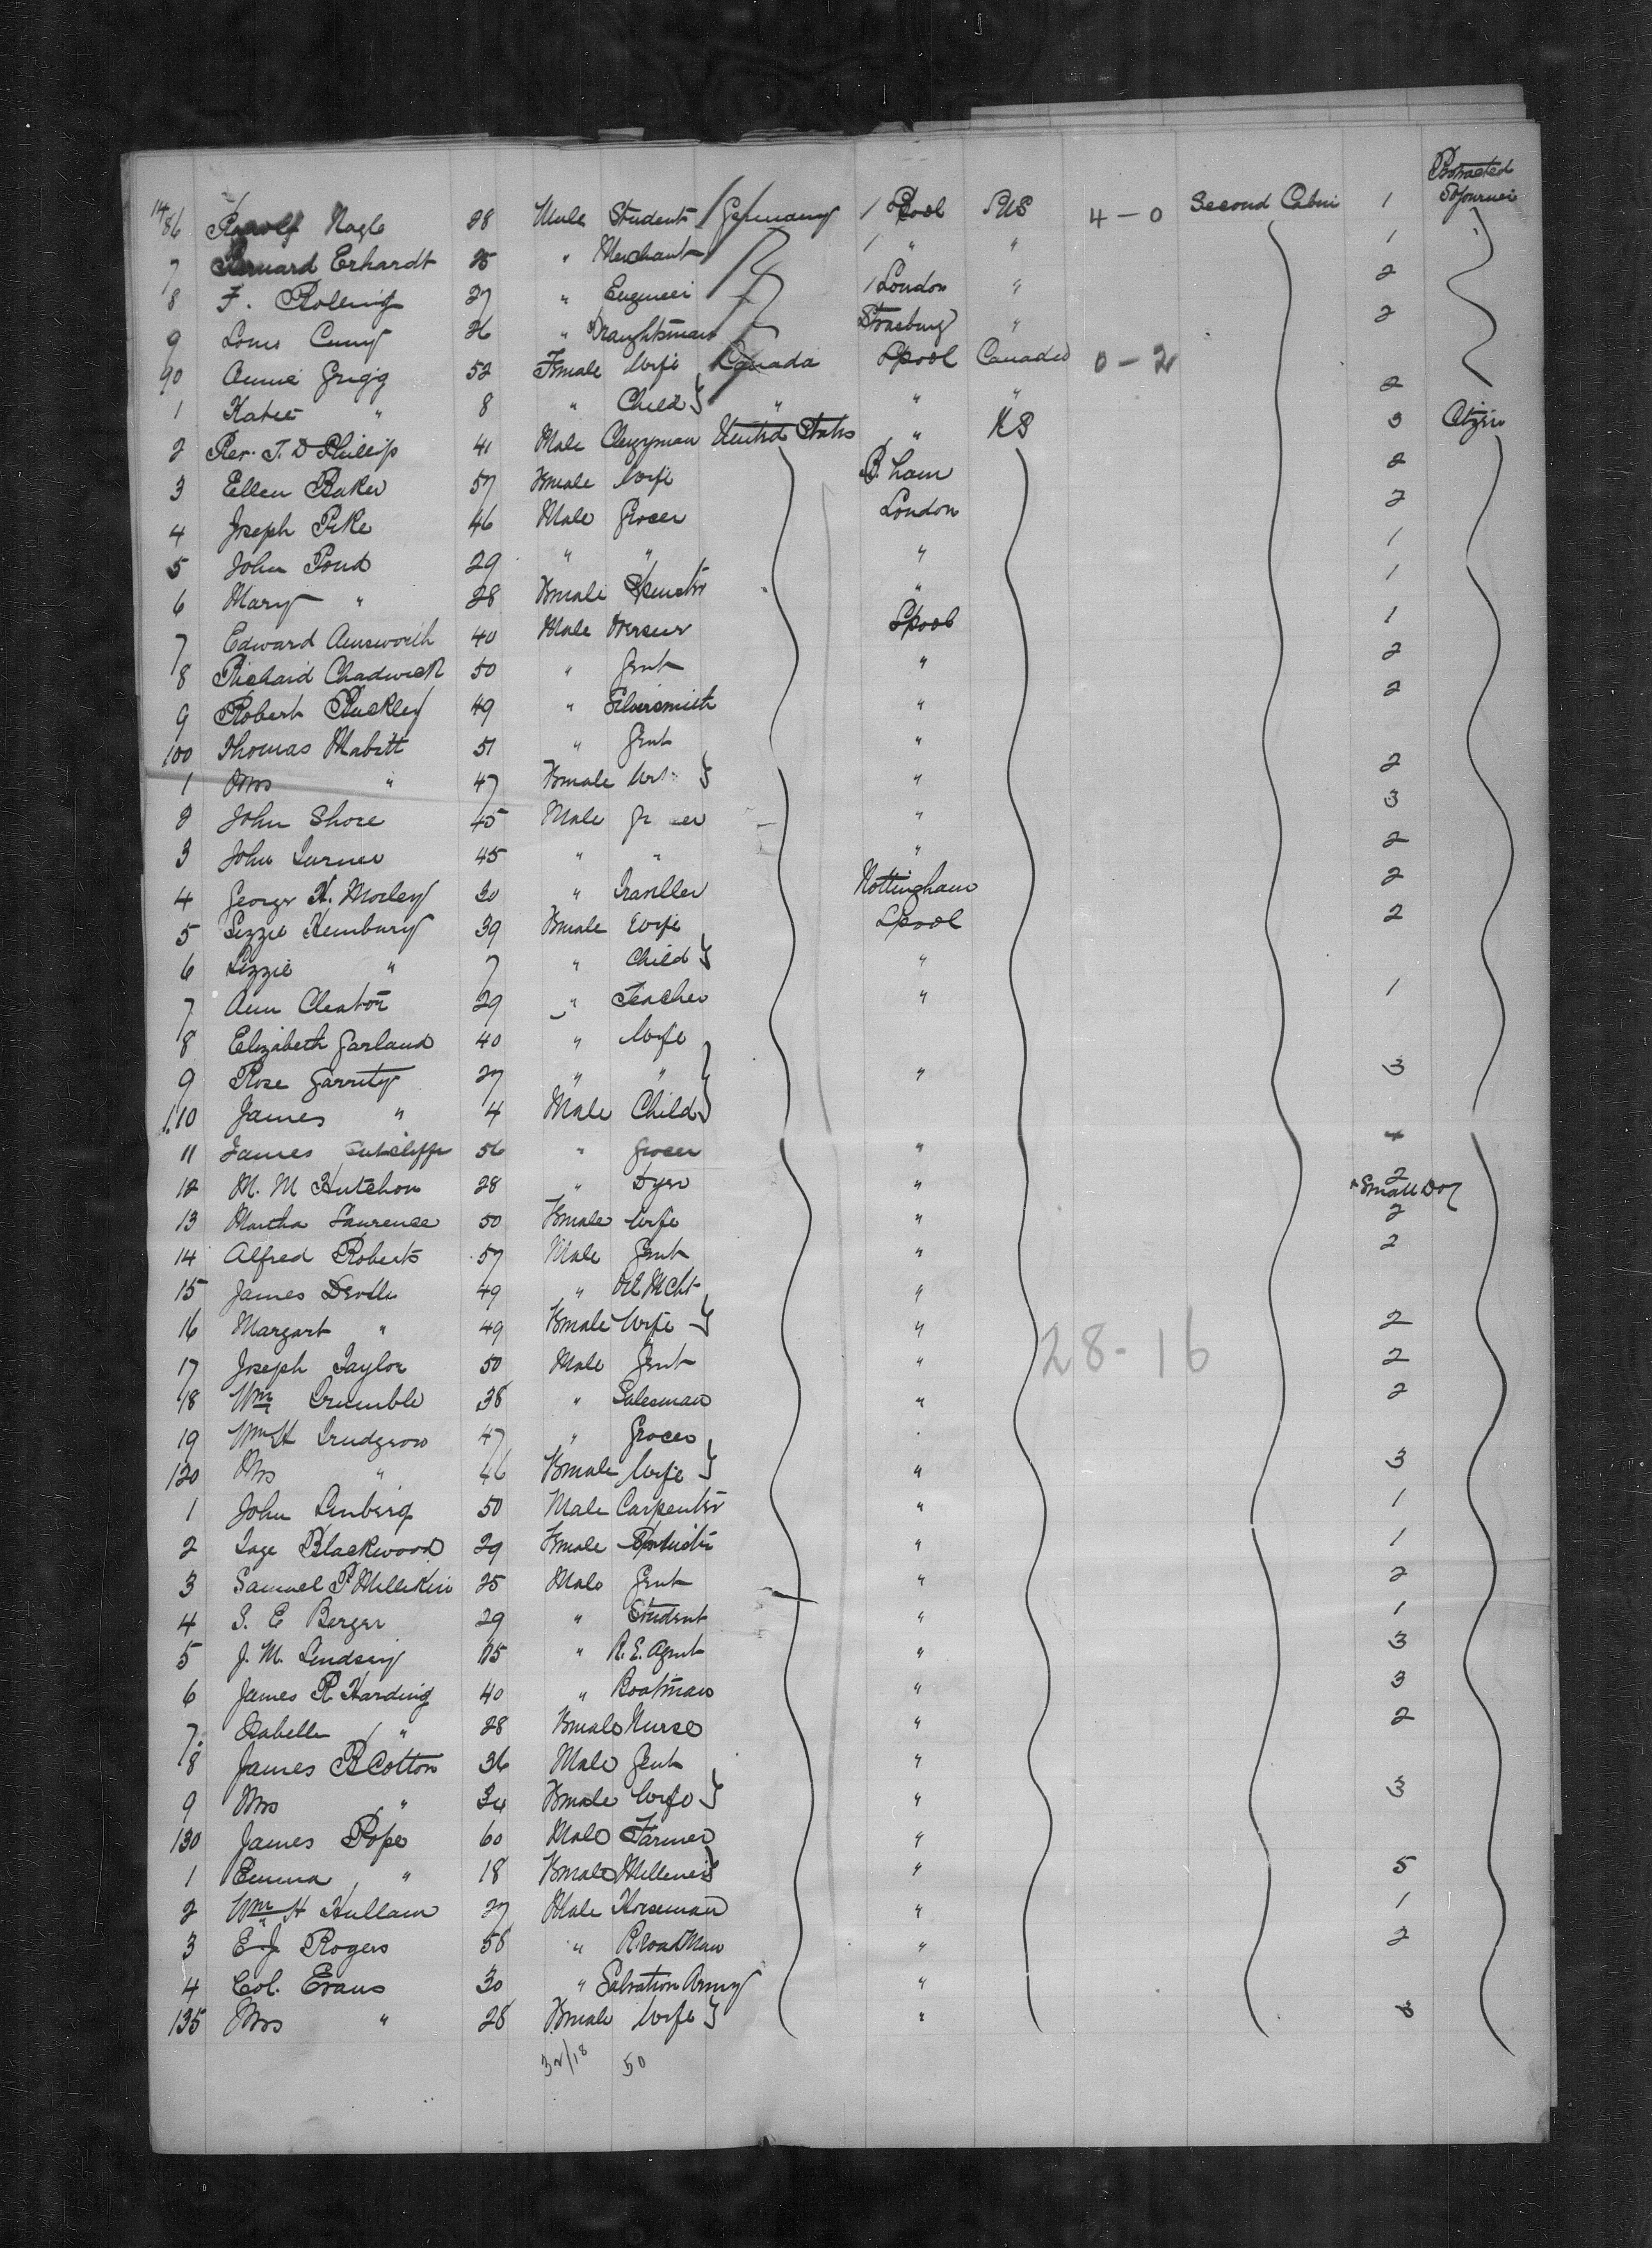 Protracted
86 Rudolf Nagle 28 Male Student Germany L'Pool U S 4 - 0 Second Cabin 1 Sojourner
7 Bernard Erhardt 25 " Merchant " " 1
8 F. Rolling 27 " Engineer London " 2
9 Louis Cuny 26 " Draughtsman Strasburg " 2
90 Annie Grigg 52 Female Wife Canada Lpool Canada 0 - 2
1 Katie " 8 " Child } " " " 2
2 Rev. T. D Phillip 41 Male Clergyman United States " U S 3 Citizen
3 Ellen Baker 57 Female Wife B. ham 2
4 Joseph Pike 46 Male Grocer London 2
5 John Pond 29 " " " 1
6 Mary " 28 Female Spinster " 1
7 Edward Ainsworth 40 Male Lpool 1
8 Richard Chadwick 50 " Gent " 2
9 Robert Buckley 49 " Silversmith " 2
100 Thomas Mabitt 51 " Gent "
1 Mrs " 47 Female Wife } " 2
2 John Shore 45 Male Grocer " 3
3 John Turner 45 " " " 2
4 George H. Morley 30 " Traveller Nottingham 2
5 Lizzie Hembury 39 Female Wife Lpool 2
6 Lizzie " 7 " Child } "
7 Ann Cleaton 29 " Teacher " 1
8 Elizabeth Garland 40 " Wife
9 Rose Garrity 27 " " " 3
110 James " 4 Male Child }
11 James Sutcliffe 56 " Grocer " 4
12 M. M Hutchon 28 " Dyer " 2
+ Small Dog
13 Martha Laurence 50 Female Wife " 2
14 Alfred Roberts 57 Male Gent " 2
15 James Devlin 49 " Oil Mcht "
16 Margart " 49 Female Wife } " 2
28-16
17 Joseph Taylor 50 Male Gent " 2
18 Wm Crumble 38 " Salesman " 2
19 Wm H Trudgeon 47 " Grocer
120 Mrs " 46 Female Wife } " 3
1 John Lenberg 50 Male Carpenter " 1
2 Blackwood 29 Female Spinster " 1
3 Samuel P Milliken 25 Male Gent " 2
4 S. E Berger 29 " Student " 1
5 J. M. Lindsay " R. E. Agent " 3
6 James R Harding 40 " Boatman " 3
7 Isabella " 28 Female Nurse " 2
8 James B Cotton 36 Male Gent "
9 Mrs " 34 Female Wife } " 3
130 James Pope 60 Male Farmer "
1 Emma " 18 Female Milliner } " 5
2 Wm H Hullam 27 Male Horseman " 1
3 E J Rogers 58 " R.road Man " 2
4 Col. Evans 30 " Salvation Army "
135 Mrs " 28 Female Wife } " 3
32/18 50